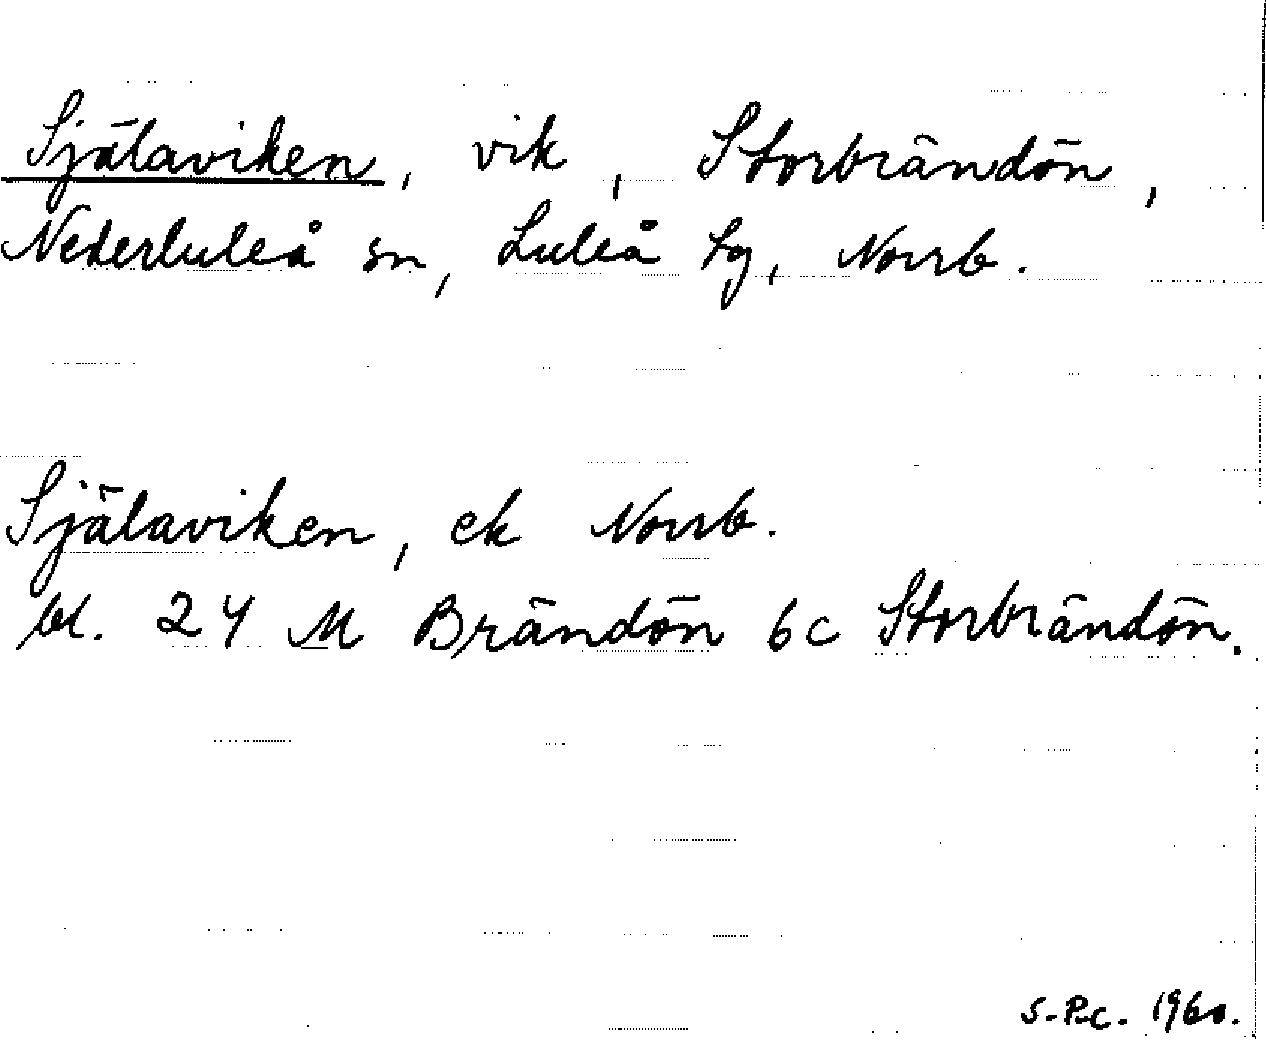 Själaviken, vik, Storbrändön,
Nederluleå sn, Luleå tg, Norrb.
Själaviken, ek Norrb.
bl. 24 M Brändön 6c Storbrändön.
S-P.c. 1960.